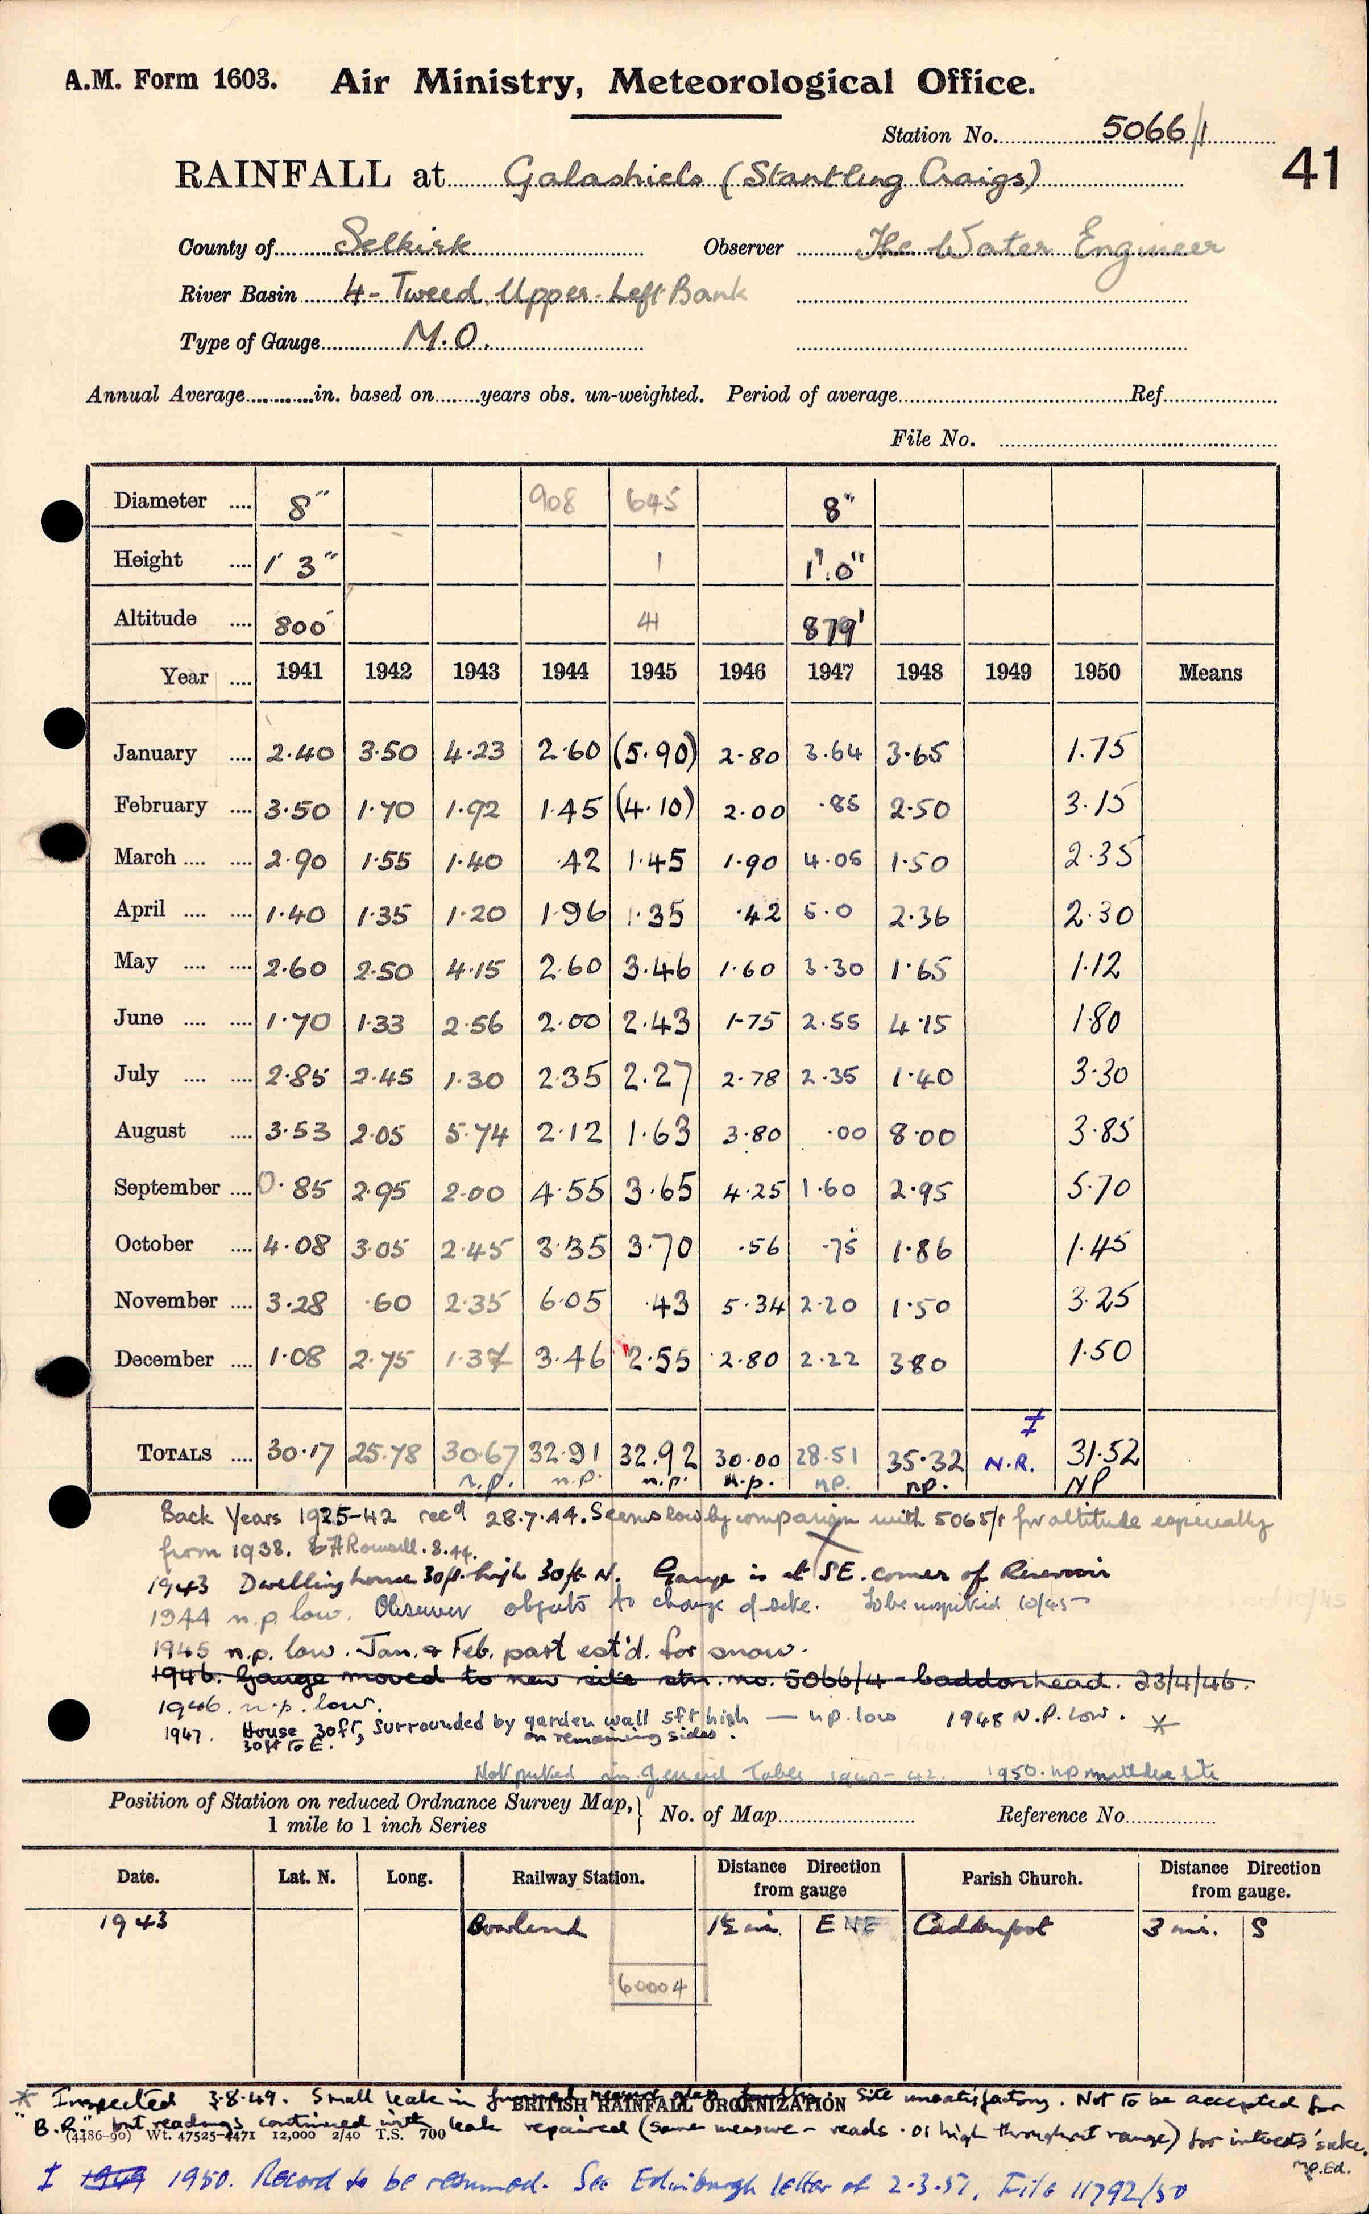 A.M. Form 1603. Air Ministry, Meteorological Office.
Station No. 5066/1
41
RAINFALL at Galashiels (Stantling Craigs)
County of Selkirk Observer The Water Engineer
River Basin 4 - Tweed, Upper. Left Bank
Type of Gauge M.O.
Annual Average in. based on years obs. un-weighted. Period of average Ref.
File No.
Diameter 8" 908 645 8"
Height 1' 3" 1 1'.0"
Altitude 800' 41 879'
Year 1941 1942 1943 1944 1945 1946 1947 1948 1949 1950 Means
January 2.40 3.50 4.23 2.60 (5.90) 2.80 3.64 3.65 1.75
February 3.50 1.70 1.92 1.45 (4.10) 2.00 .85 2.50 3.15
March 2.90 1.55 1.40 .42 1.45 1.90 4.05 1.50 2.35
April 1.40 1.35 1.20 1.96 1.35 .42 5.0 2.36 2.30
May 2.60 2.50 4.15 2.60 3.46 1.60 3.30 1.65 1.12
June 1.70 1.33 2.56 2.00 2.43 1.75 2.55 4.15 1.80
July 2.85 2.45 1.30 2.35 2.27 2.78 2.35 1.40 3.30
August 3.53 2.05 5.74 2.12 1.63 3.80 .00 8.00 3.85
September 0.85 2.95 2.00 4.55 3.65 4.25 1.60 2.95 5.70
October 4.08 3.05 2.45 3.35 3.70 .56 .75 1.86 1.45
November 3.28 .60 2.35 6.05 .43 5.34 2.20 1.50 3.25
December 1.08 2.75 1.37 3.46 2.55 2.80 2.22 3.80 1.50
‡
TOTALS 30.17 25.78 30.67 32.91 32.92 30.00 28.51 35.32 N.R. 31.52
n.p. n.p. n.p. n.p. np. np. NP
Back Years 1925-42 recd 28.7.44. Seems low by comparison with 5065/1 for altitude especially
from 1938. 8.44.
1943 Dwelling house 30ft. high 30ft N. Gauge is at SE. corner of Reservoir
1944 n.p. low. Observer objects to change of site. To be inspected 10/45
1945 n.p. low. Jan. & Feb. part est'd. for snow.
1946. Gauge moved to new site stn. no. 5066/4 - baddonhead. 23/4/46.
1946. n.p. low.
1947. House 30ft, surrounded by garden wall 5ft high — n.p. low 1948 N.P. Low. *
30ft to E. on remaining sides.
Not in General Table 1940-42. 1950. np
Position of Station on reduced Ordnance Survey Map, } No. of Map Reference No.
1 mile to 1 inch Series
Date. Lat. N. Long. Railway Station. Distance Direction from gauge Parish Church. Distance Direction from gauge.
1943 Bowland 1½ mi. E NE Caddonfoot 3 mi. S
60004
* Inspected 3.8.49. Small leak in Site unsatisfactory. Not to be accepted for
BRITISH RAINFALL ORGANIZATION
"B.R." but readings continued with leak repaired (same measure - reads .01 high throughout range) for interests' sake.
(4486-90) Wt. 47525-4471 12,000 2/40 T.S. 700
‡ 1949 1950. Record to be resumed. See Edinburgh letter of 2.3.51, File 11792/50